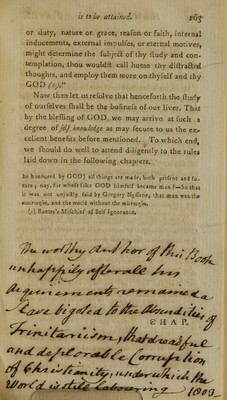 is to be attained. 265
or duty, nature or grace, reason or faith, internal
inducements, external impulses, or eternal motives,
might determine the subject of thy study and con-
templation, thou wouldst call home thy distracted
thoughts, and employ them more on thyself and thy
GOD (1)."
Now then let us resolve that henceforth the study
of ourselves shall be the business of our lives. That
by the blessing of GOD, we may arrive at such a
degree of self knowledge as may secure to us the ex-
cellent benefits before mentioned. To which end,
we should do well to attend diligently to the rules
laid down in the following chapters.
be honoured by GOD) all things are made, both present and fu-
ture; nay, for whose sake GOD himself became man!—So that
it was not unjustly said by Gregory Nyssene, that man was the
macrocosm, and the world without the microcosm.
(1) Baxter's Mischief of Self Ignorance.
CHAP.
The worthy Author of this Book
unhappily after all his
Acquirements remained a
Slave bigoted to the Absurdities of
Trinitarianism, that dreadful
and deplorable Corruption
of Christianity, under which the
World is still labouring 1803